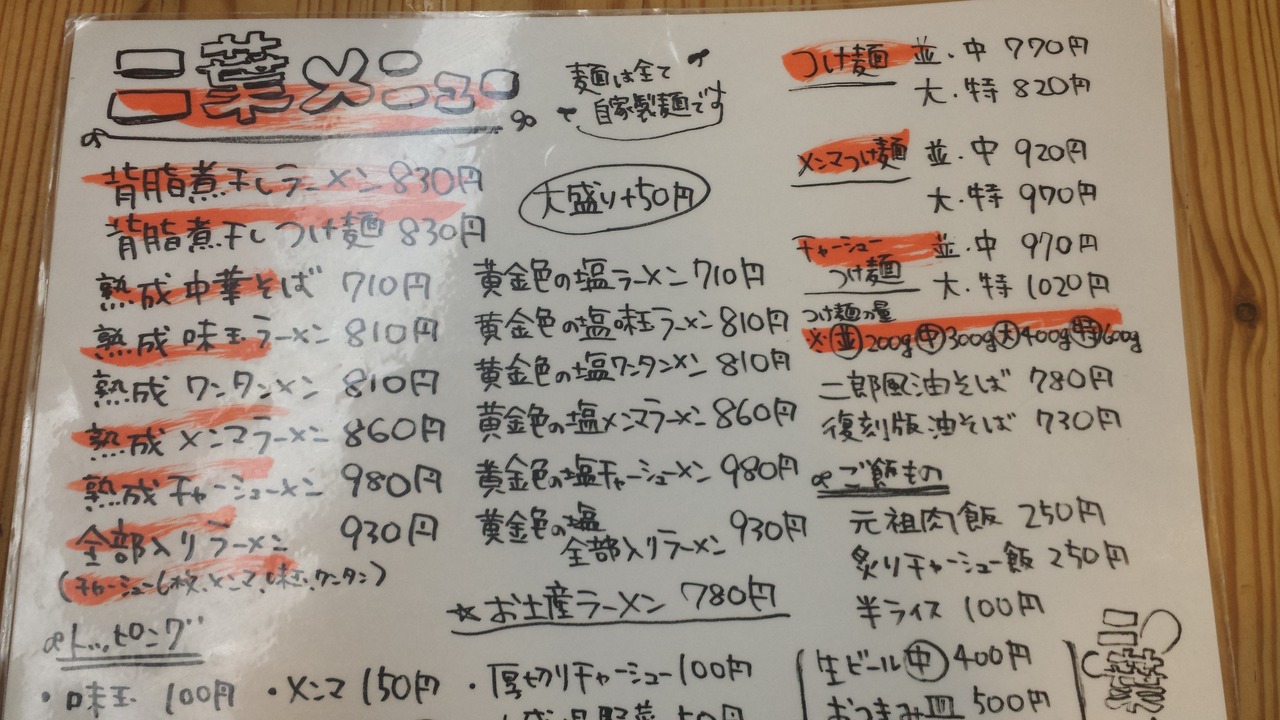 二葉メニュー
麺は全て
自家製麺です
背脂煮干しラーメン 830円
背脂煮干しつけ麺 830円
熟成中華そば 710円
熟成味玉ラーメン 810円
熟成ワンタンメン 810円
熟成メンマラーメン 860円
熟成チャーシューメン 980円
全部入りラーメン 930円
(チャーシュー1枚、メンマ、味玉、ワンタン)
大盛り+50円
黄金色の塩ラーメン 710円
黄金色の塩味玉ラーメン 810円
黄金色の塩ワンタンメン 810円
黄金色の塩メンマラーメン 860円
黄金色の塩チャーシューメン 980円
黄金色の塩
全部入りラーメン 930円
☆お土産ラーメン 780円
つけ麺 並・中 770円
大・特 820円
メンマつけ麺 並・中 920円
大・特 970円
チャーシュー
つけ麺 並・中 970円
大・特 1020円
つけ麺の量
※並200g中300g大400g特600g
二郎風油そば 780円
復刻版油そば 730円
ご飯もの
元祖肉飯 250円
炙りチャーシュー飯 250円
半ライス 100円
生ビール中 400円
おつまみ皿 500円
トッピング
・味玉 100円 ・メンマ 150円 ・厚切りチャーシュー 100円
二葉